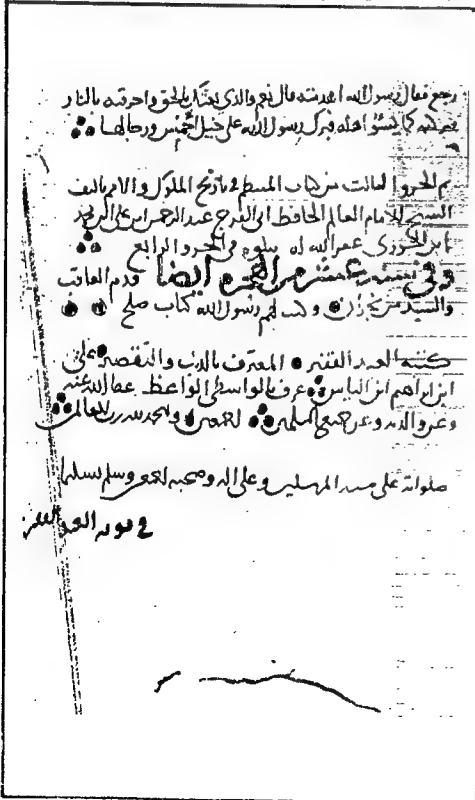 رجع فقال رسول الله اهدمته قال نعم والذي بعثك بالحق واحرقته بالنار
فبرك رسول الله على خيل احمس ورجالها
تم الجزو الثالث من كتاب المنتظم في تاريخ الملوك والامم تاليف
الشيخ الامام العالم الحافظ ابى الفرج عبد الرحمن ابن على ابن محمد
ابن الجوزى غفر الله له يتلوه في الجزو الرابع
وفي سنة عشر من الهجرة ايضا قدم العاقب
والسيد من نجران وكتب لهم رسول الله كتاب صلح
كتبه العبد الفقير المعترف بالذنب والتقصير على
ابن ابراهم ابن الياس عرف بالواسطى الواعظ عفا الله عنه
وعن والديه وعن جميع المسلمين اجمعين والحمد لله رب العالمين
صلواته على سيد المرسلين وعلى اله وصحبه اجمعين وسلم تسليما
في نوبة العبد الفقير